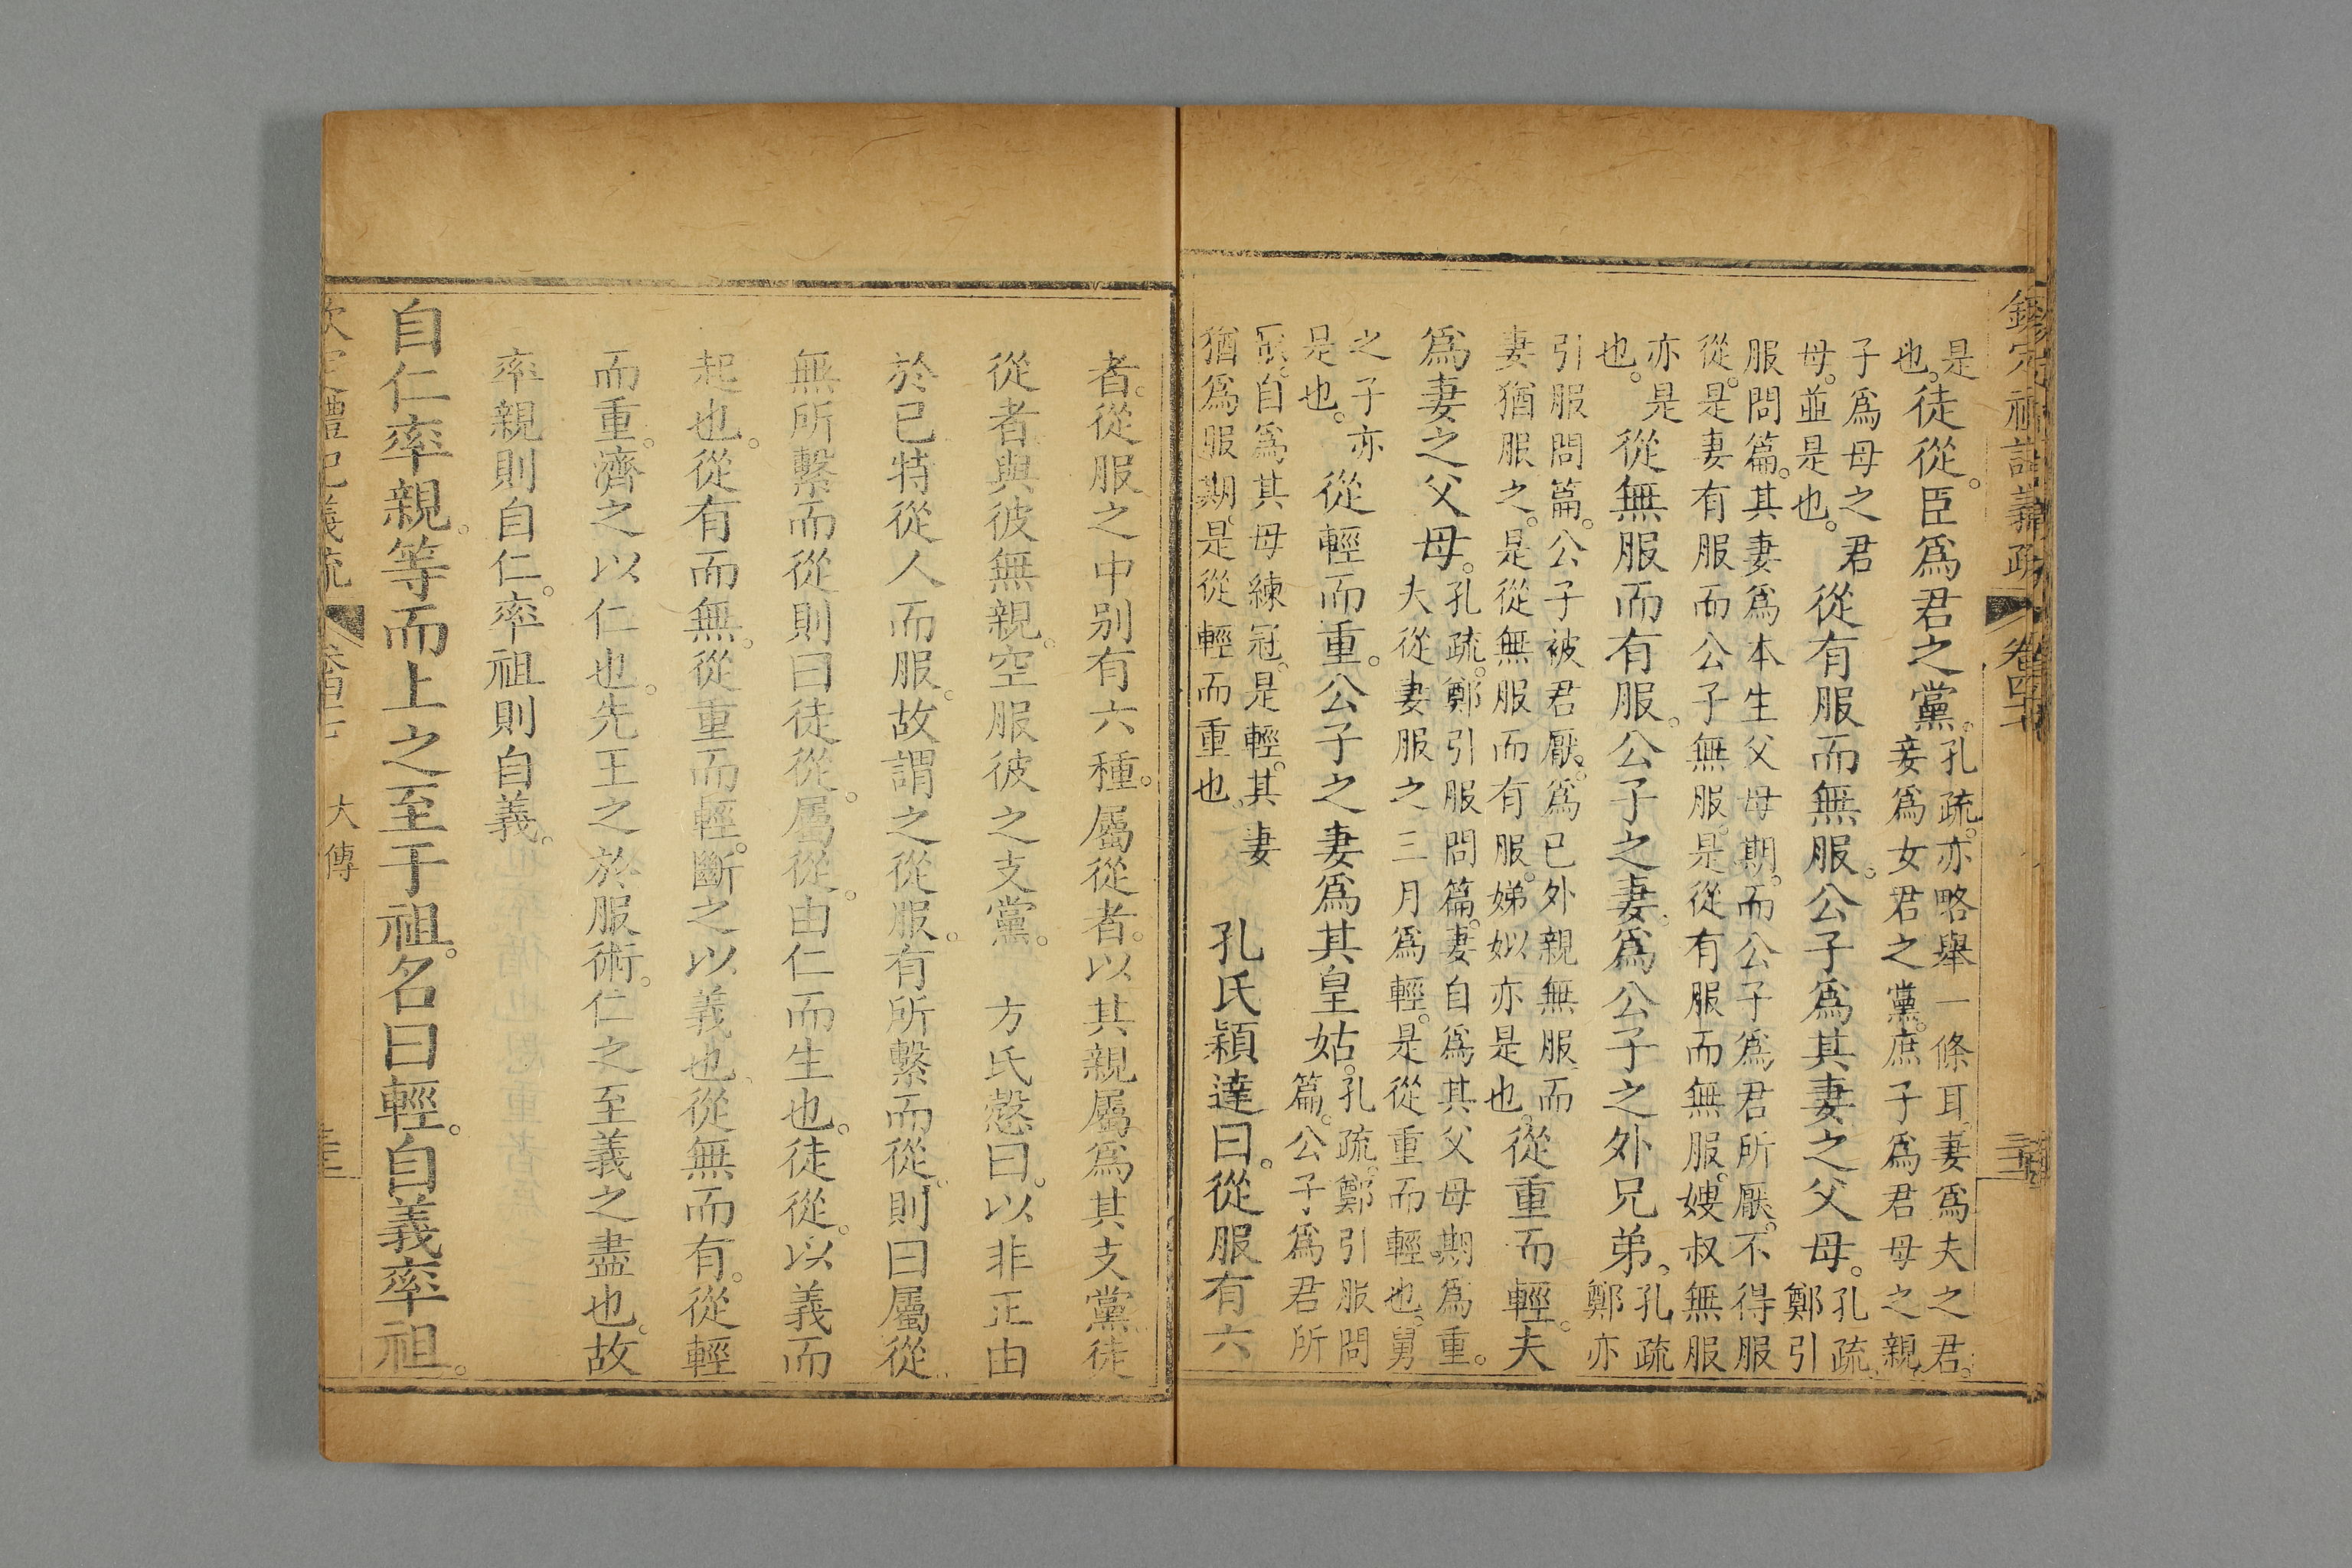 欽定禮記義疏 卷四十七
是也。徒從。臣爲君之黨。孔疏。亦略舉一條耳。妻爲夫之君。妾爲女君之黨。庶子爲君母之親。
子爲母之君母。並是也。從有服而無服。公子爲其妻之父母。孔疏鄭引
服問篇。其妻爲本生父母期。而公子爲君所厭。不得服從。是妻有服而公子無服。是從有服而無服。嫂叔無服
亦是也。從無服而有服。公子之妻。爲公子之外兄弟。孔疏鄭亦
引服問篇。公子被君厭。爲已外親無服而妻猶服之。是從無服而有服。娣姒亦是也。從重而輕。夫
爲妻之父母。孔疏。鄭引服問篇。妻自爲其父母期爲重。夫從妻服之三月爲輕。是從重而輕也。舅
之子亦是也。從輕而重。公子之妻爲其皇姑。孔疏。鄭引服問篇。公子爲君所
厭。自爲其母練冠。是輕。其妻猶爲服期。是從輕而重也。孔氏穎達曰。從服有六
者。從服之中別有六種。屬從者。以其親屬爲其支黨徒
從者與彼無親。空服彼之支黨。 方氏慤曰。以非正由
於已特從人而服。故謂之從服。有所繫而從。則曰屬從
無所繫而從則曰徒從。屬從。由仁而生也。徒從。以義而
起也。從有而無。從重而輕。斷之以義也。從無而有。從輕
而重。濟之以仁也。先王之於服術。仁之至義之盡也。故
率親則自仁。率祖則自義。
自仁率親。等而上之至于祖。名曰輕。自義率祖。
欽定禮記義疏 大傳